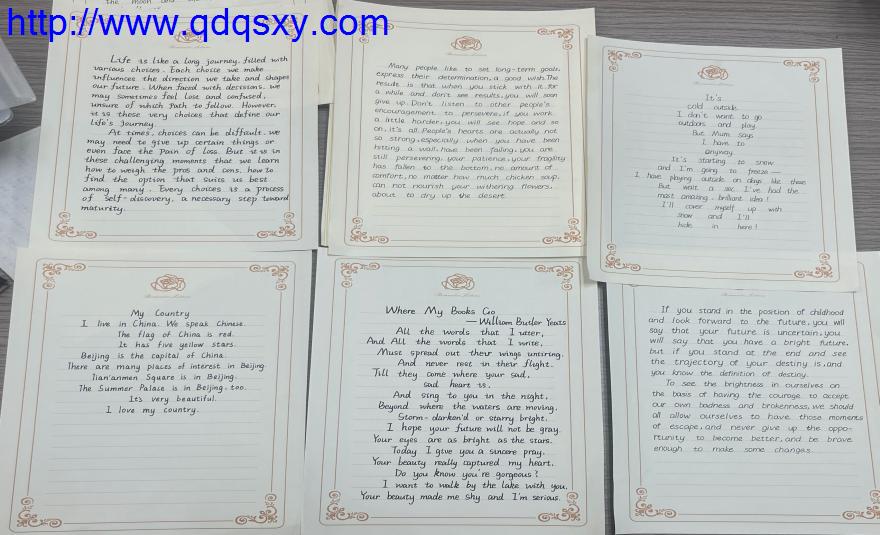 http://www.qdqsxy.com
the moon and
Life is like a long journey, filled with
various choices. Each choice we make
influences the direction we take and shapes
our future. When faced with decisions, we
may sometimes feel lost and confused,
unsure of which path to follow. However,
it is these very choices that define our
life's journey.
At times, choices can be difficult. we
may need to give up certain things or
even face the pain of loss. But it is in
these challenging moments that we learn
how to weigh the pros and cons, how to
find the option that suits us best
among many. Every choices is a process
of self-discovery, a necessary step toward
maturity.
Many people like to set long-term goals,
express their determination, a good wish. The
result is that when you stick with it for
a while and don't see results, you will soon
give up. Don't listen to other people's
encouragement to persevere, if you work
a little harder, you will see hope and so
on, it's all. People's hearts are actually not
so strong, especially when you have been
hitting a wall, have been failing, you are
still persevering, your patience, your fragility
has fallen to the bottom, no amount of
comfort, no matter how much chicken soup,
can not nourish your withering flowers,
about to dry up the desert.
It's
cold outside.
I don't want to go
outdoors and play
But Mum says
I have to
anyway.
It's starting to snow
and I'm going to freeze—
I have playing outside on days like these
But wait a sec, I've had the
most amazing, brilliant idea!
I'll cover myself up with
snow and I'll
hide in here!
My Country
I live in China. We speak Chinese.
The flag of China is red.
It has five yellow stars.
Beijing is the capital of China.
There are many places of interest in Beijing.
Tian'anmen Square is in Beijing.
The Summer Palace is in Beijing, too.
It's very beautiful.
I love my country.
Where My Books Go
—William Butler Yeats
All the words that I utter,
And All the words that I write,
Must spread out their wings untiring,
And never rest in their flight,
Till they come where your sad,
sad heart is,
And sing to you in the night,
Beyond where the waters are moving,
Storm-darken'd or starry bright.
I hope your future will not be gray.
Your eyes are as bright as the stars.
Today I give you a sincere pray.
Your beauty really captured my heart.
Do you know you're gorgeous?
I want to walk by the lake with you.
Your beauty made me shy and I'm serious.
If you stand in the position of childhood
and look forward to the future, you will
say that your future is uncertain, you
will say that you have a bright future,
but if you stand at the end and see
the trajectory of your destiny is, and
you know the definition of destiny.
To see the brightness in ourselves on
the basis of having the courage to accept
our own badness and brokenness, we should
all allow ourselves to have those moments
of escape, and never give up the oppo-
rtunity to become better, and be brave
enough to make some changes.